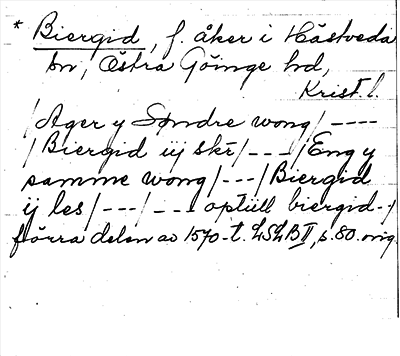 * Biergid, f. åker i Hästveda
sn, Östra Göinge hd,
Krist. l.
/Ager y Søndre wong/----
/Biergid iij skr/---/Eng y
samme wong/---/Biergid
ij les/---/---optüll biergid--/
förra delen av 1570-t. LSLB II, s. 80. orig.